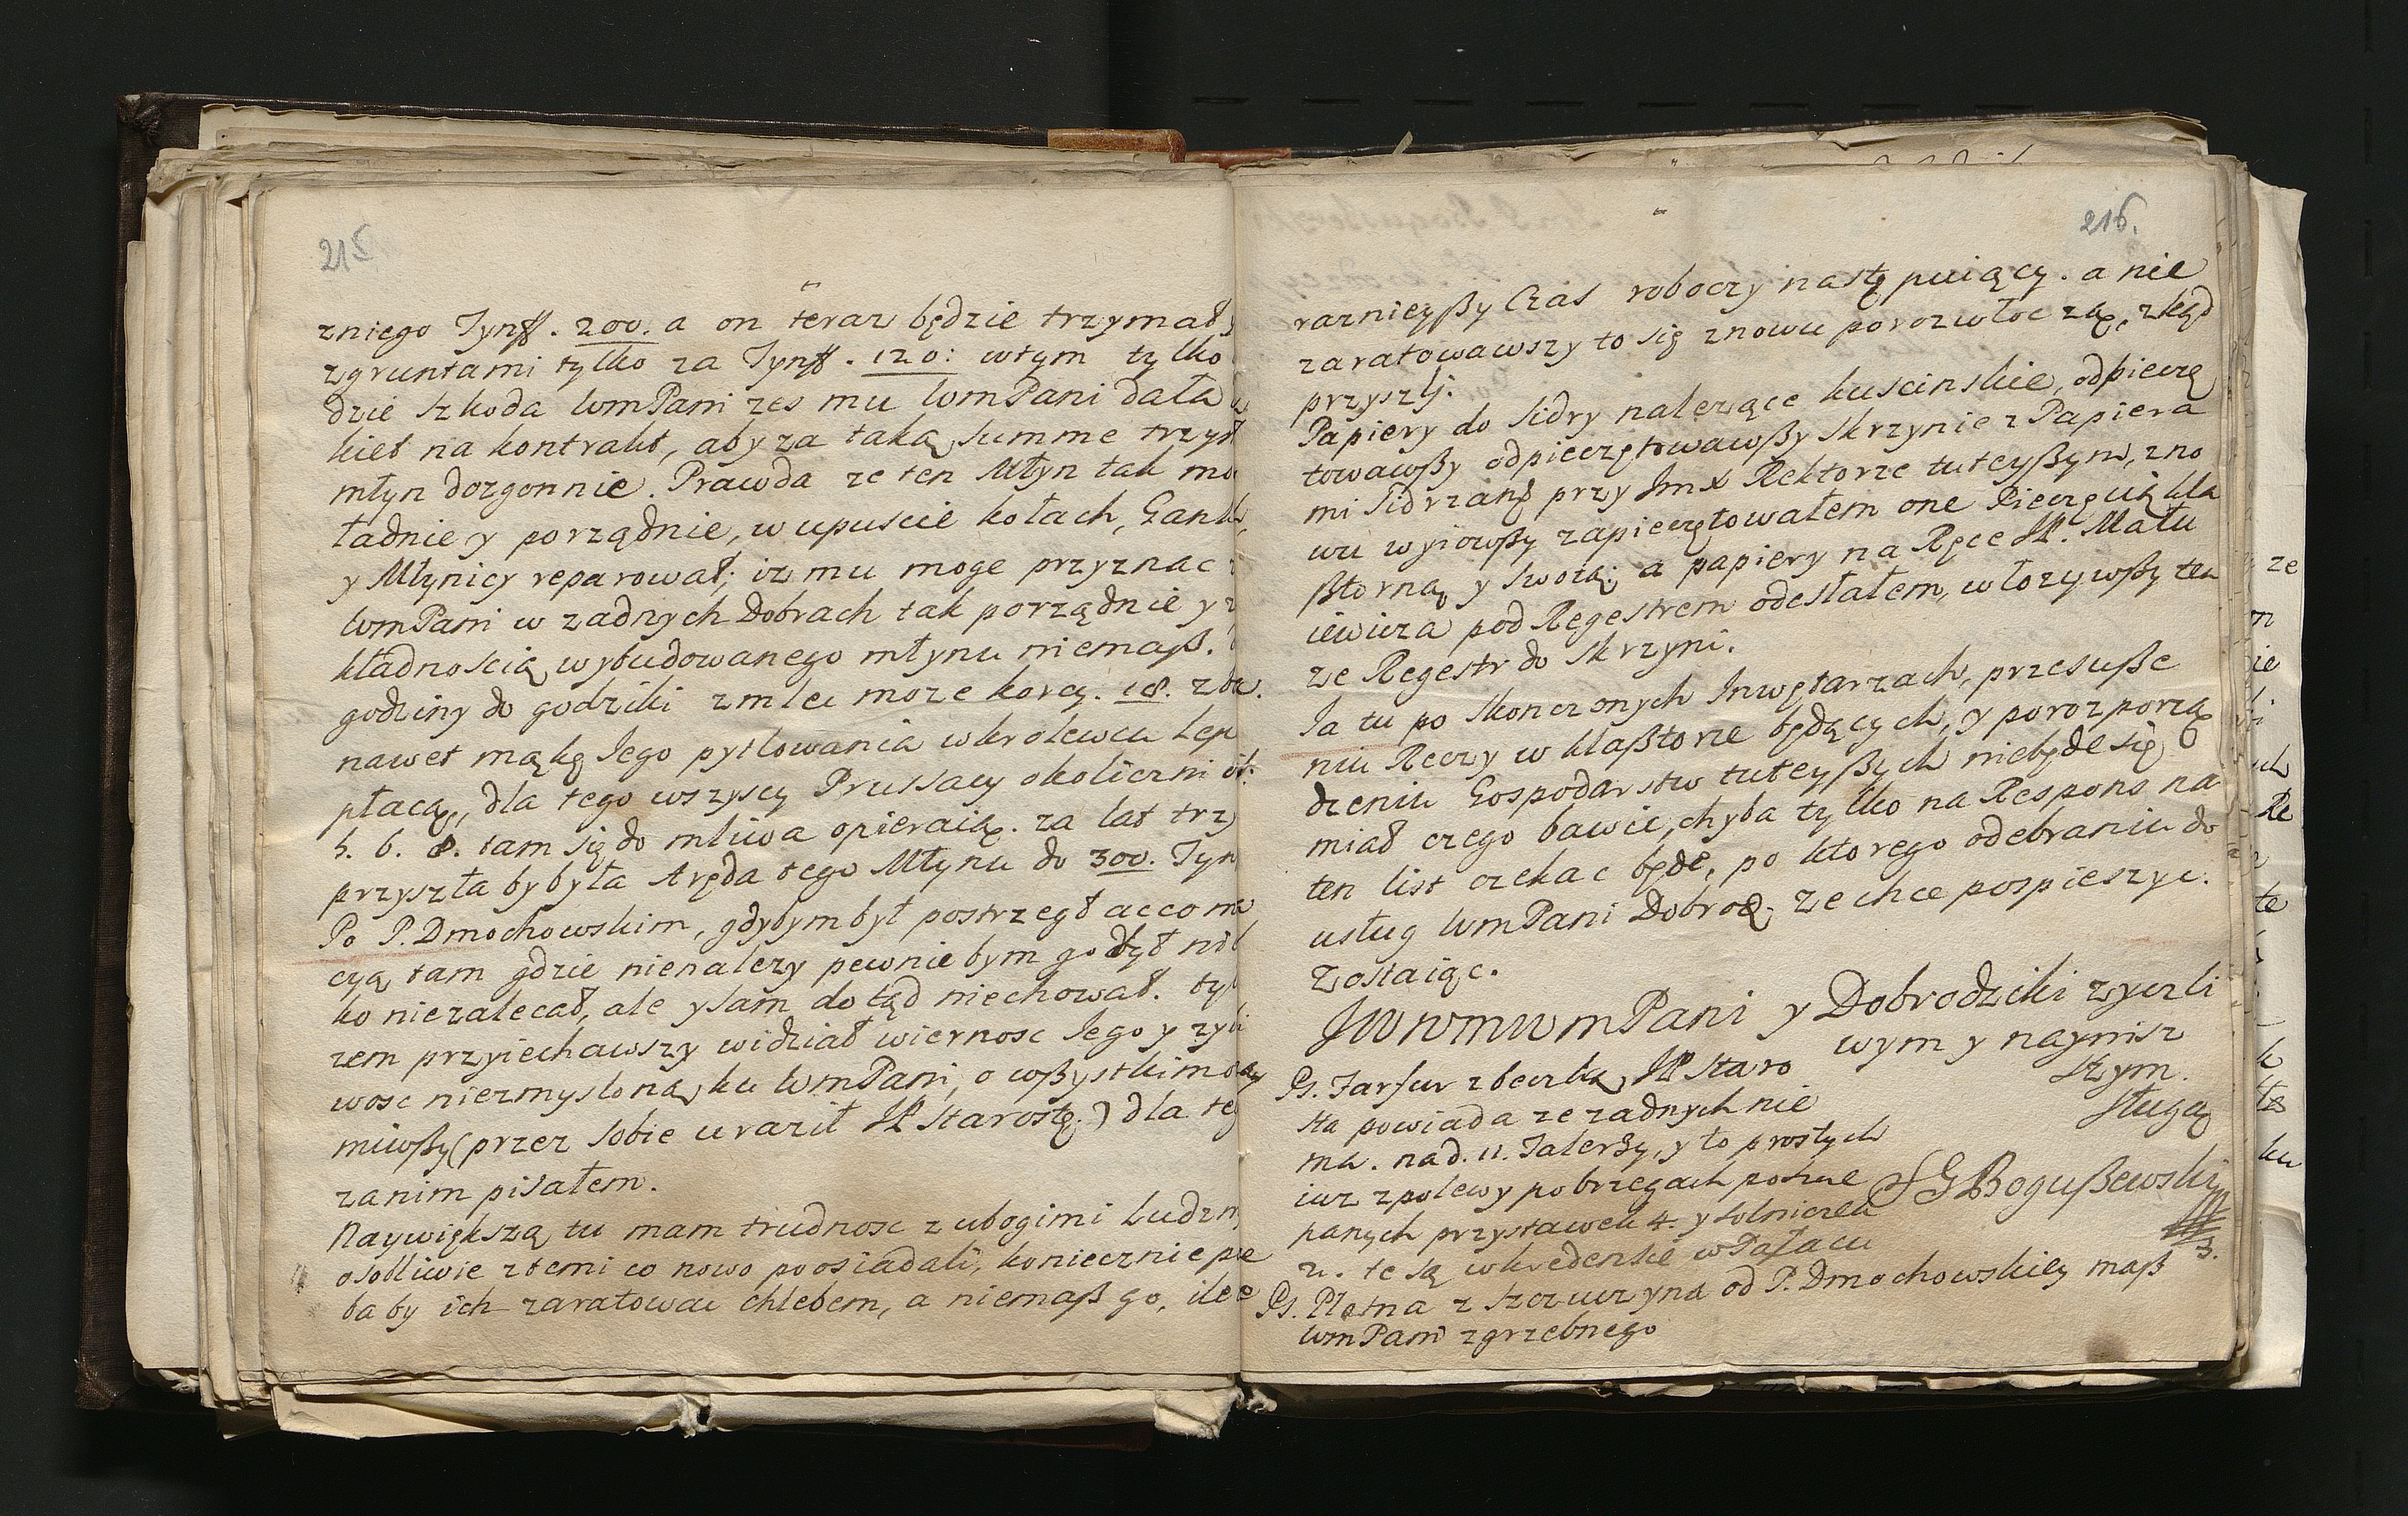 215
zniego Tynff. 200. a on teraz będzie trzymał
zgruntami tylko za Tynff. 120: wtym tylko
dzie szkoda WmPani zes mu WmPani dała
kiet na kontrakt, aby za taką summe trzy
młyn dozgonnie. Prawda ze ten Młyn tak
ładnie y porządnie, w upuscie kołach,
y Młynicy reparował; iz mu moge przyznac
WmPani w zadnych Dobrach tak porządnie y
kładnoscią wybudowanego młynu niemaß.
godziny do godziki zmleć moze korcy. 18.
nawet mąkę Jego pytlowania wkrolewcu lep
płacą, dla tego wszyscy Prussacy okoliczni
5. 6. 8. sam się do mliwa opieraią. za lat trzy
przyszła by była Aręda tego Młynu do 300. Tyn
Po P. Dmochowskim, gdybym był postrzegł
cyą tam gdzie nienalezy pewnie bym go był
ko niezalecał, ale y sam dotąd niechował. tyl
zem przyiechawszy widział wiernosc Jego y zyli
wosc niezmysloną ku WmPani, o wßystkim
miwßy (przez sobie uraził JP Starostę) dla teg
zanim pisałem.
Naywiększą tu mam trudnosc z ubogimi ludzmi
osobliwie ztemi co nowo poosiadali, koniecznie
ba by ich zaratowac chlebem, a niemaß go, ilee
216.
raznieyßy Czas roboczy następuiący. a nie
zaratowawszy to się znowu porozwłoczą, zkąd
przyszlj.
Papiery do Sidry nalezące kuscinskie, odpieczę
towawßy odpieczętowawßy Skrzynie z Papiera
mi Sidrzanß przy Jmx Rektorze tuteyßym, zno
wu wyiowßy zapieczętowałem one Pieczęcią kla
ßtorną y swoią; a papiery na Ręce JP. Matu
iewicza pod Regestrem odesłałem, włozywßy ten
ze Regestr do Skrzyni.
Ja tu po Skonczonych Inwętarzach, przesuße
niu Rzczy w klaßtorze będących, y porozporzą
dzeniu Gospodarstw tuteyßych niebęde się
miał czego bawic, chyba tylko na Respons na
ten list czekac będe, po ktorego odebraniu do
usług WmPani Dobroę. ze chce pospieszyc.
Zostaiąc.
JWWMWmPani y Dobrodziki zyczli
wym y naynisz
szym.
sługą
SGBogußewski
Ps. Farfur zbeczką JP Staro
sta powiada ze zadnych nie
ma. nad. 11. Talerßy, y to prostych
iuz zpolewy po brzegach poszcze
panych przystawek 4. y solniczek
2. te są wkredensie wPałacu
3.
Ps. Płotna z Szczuczyna od P. Dmochowskiey maß
WmPani zgrzebnego